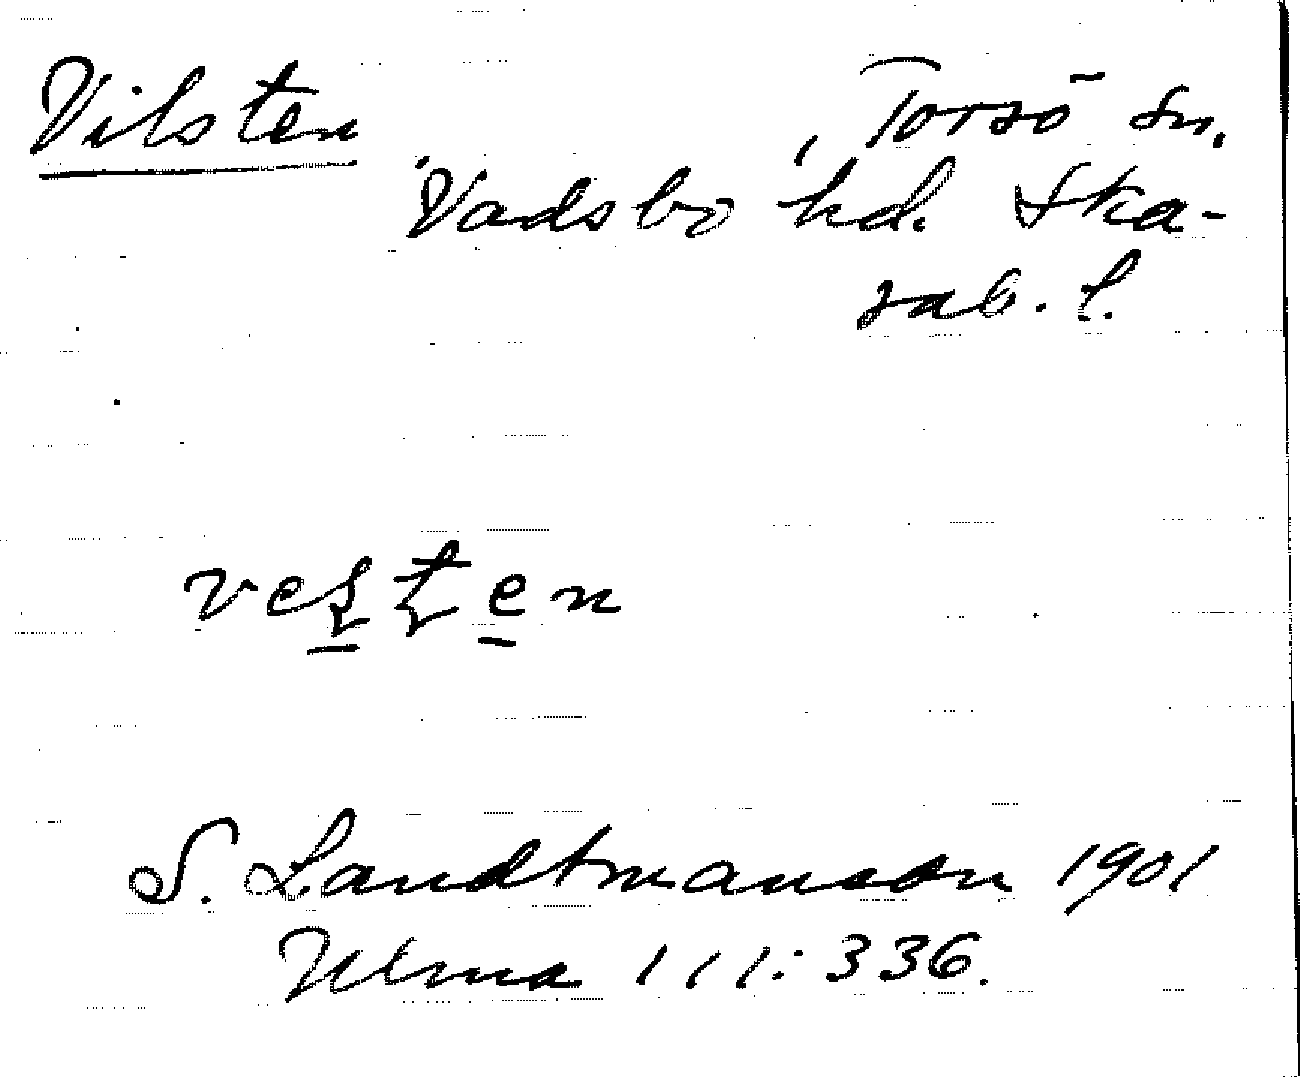 Vilsten , Torsö sn,
Vadsbo hd. Ska-
rab. l.
S. Landtmanson 1901
Ulma 111:336.